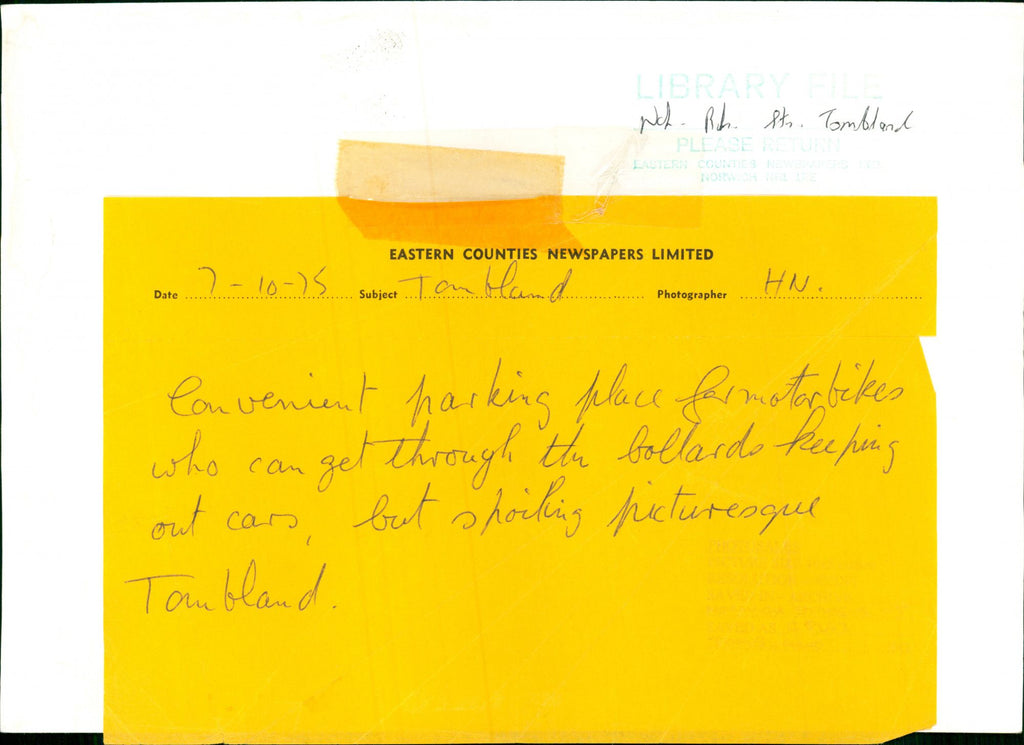 LIBRARY FILE
Nch. Rds. Sts. Tombland
PLEASE RETURN
EASTERN COUNTIES NEWSPAPERS LTD
NORWICH NR1 1RE
EASTERN COUNTIES NEWSPAPERS LIMITED
Date 7-10-75 Subject Tombland Photographer HN.
Convenient parking place for motorbikes
who can get through the bollards keeping
out cars, but spoiling picturesque
Tombland.